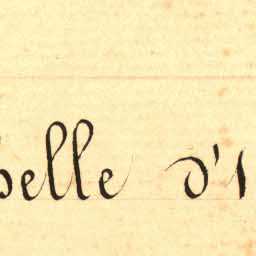 belle d'I